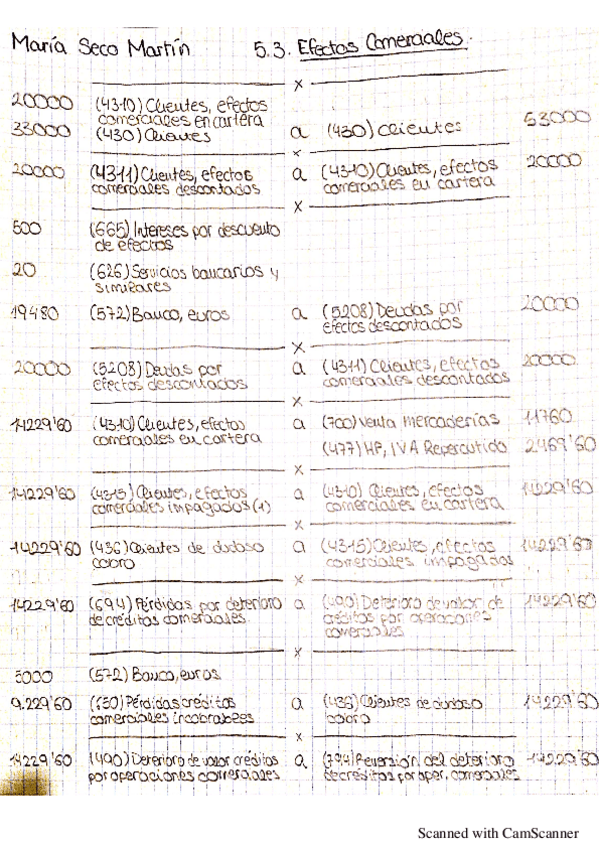 María Seco Martín 5.3. Efectos Comerciales.
x
20000 (4310) Clientes, efectos
comerciales en cartera
33000 (430) Clientes a (430) Clientes 53000
x
20000 (4311) Clientes, efectos a (4310) Clientes, efectos 20000
comerciales descontados comerciales en cartera
x
500 (665) Intereses por descuento
de efectos
20 (626) Servicios bancarios y
similares
19480 (572) Banco, euros a (5208) Deudas por 20000
efectos descontados
x
20000 (5208) Deudas por a (4311) Clientes, efectos 20000
efectos descontados comerciales descontados
x
14229'60 (4310) Clientes, efectos a (700) Venta mercaderías 11760
comerciales en cartera (477) HP, IVA Repercutido 2469'60
x
14229'60 (4315) Clientes, efectos a (4310) Clientes, efectos 14229'60
comerciales impagados (1) comerciales en cartera
x
14229'60 (436) Clientes de dudoso a (4315) Clientes, efectos 14229'60
cobro comerciales impagados
x
14229'60 (694) Pérdidas por deterioro a (490) Deterioro de valor de 14229'60
de créditos comerciales. créditos por operaciones
comerciales
x
5000 (572) Banco, euros
9.229'60 (650) Pérdidas créditos a (436) Clientes de dudoso 14229'60
comerciales incobrables cobro
x
14229'60 (490) Deterioro de valor créditos a (794) Reversión del deterioro 14229'60
por operaciones comerciales de créditos por oper. comerciales
Scanned with CamScanner